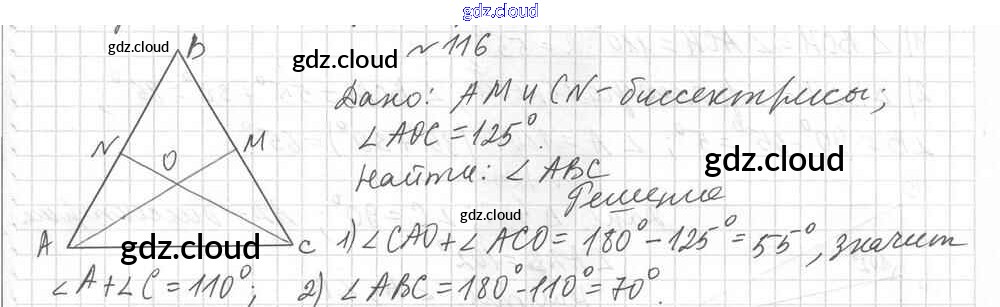 gdz.cloud
gdz.cloud
B
№116
gdz.cloud
Дано: AM и CN - биссектрисы;
∠AOC = 125°.
N
O
M
gdz.cloud
Найти: ∠ABC
Решение
gdz.cloud
A
gdz.cloud
C
1) ∠CAO + ∠ACO = 180° - 125° = 55°, значит
∠A + ∠C = 110°; 2) ∠ABC = 180° - 110° = 70°.